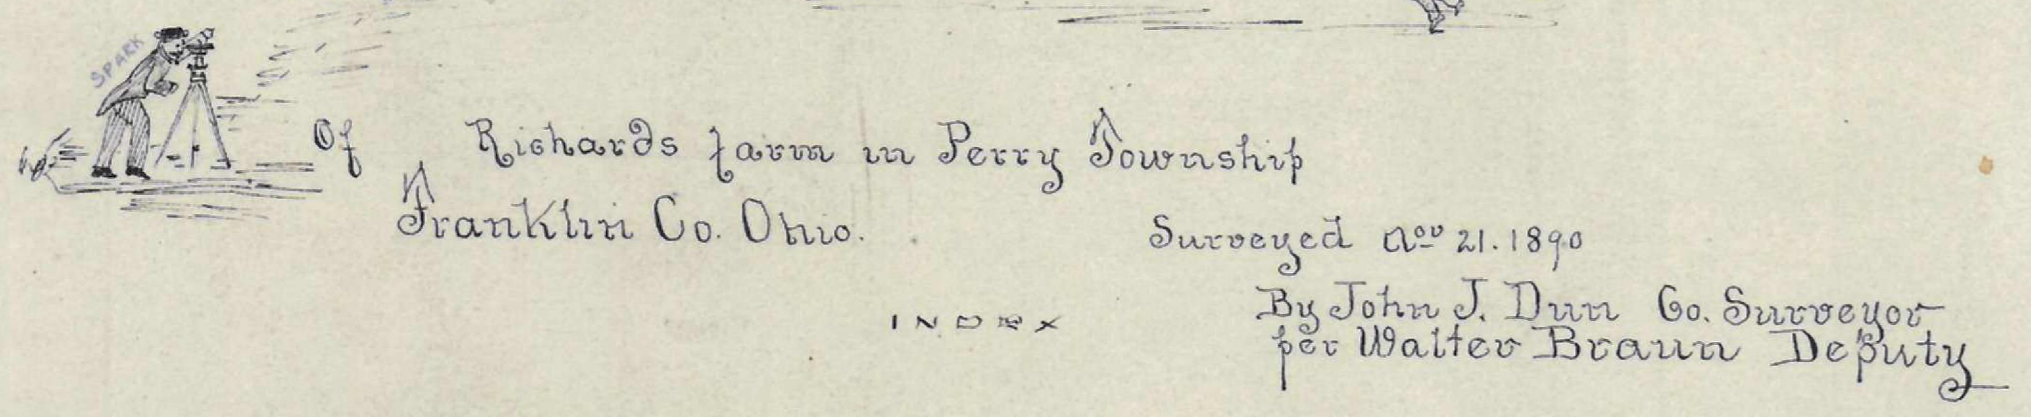 SPARK
Of Richards farm in Perry Township
Franklin Co. Ohio.
Surveyed Nov 21. 1890
INDEX
By John J. Dun Co. Surveyor
per Walter Braun Deputy